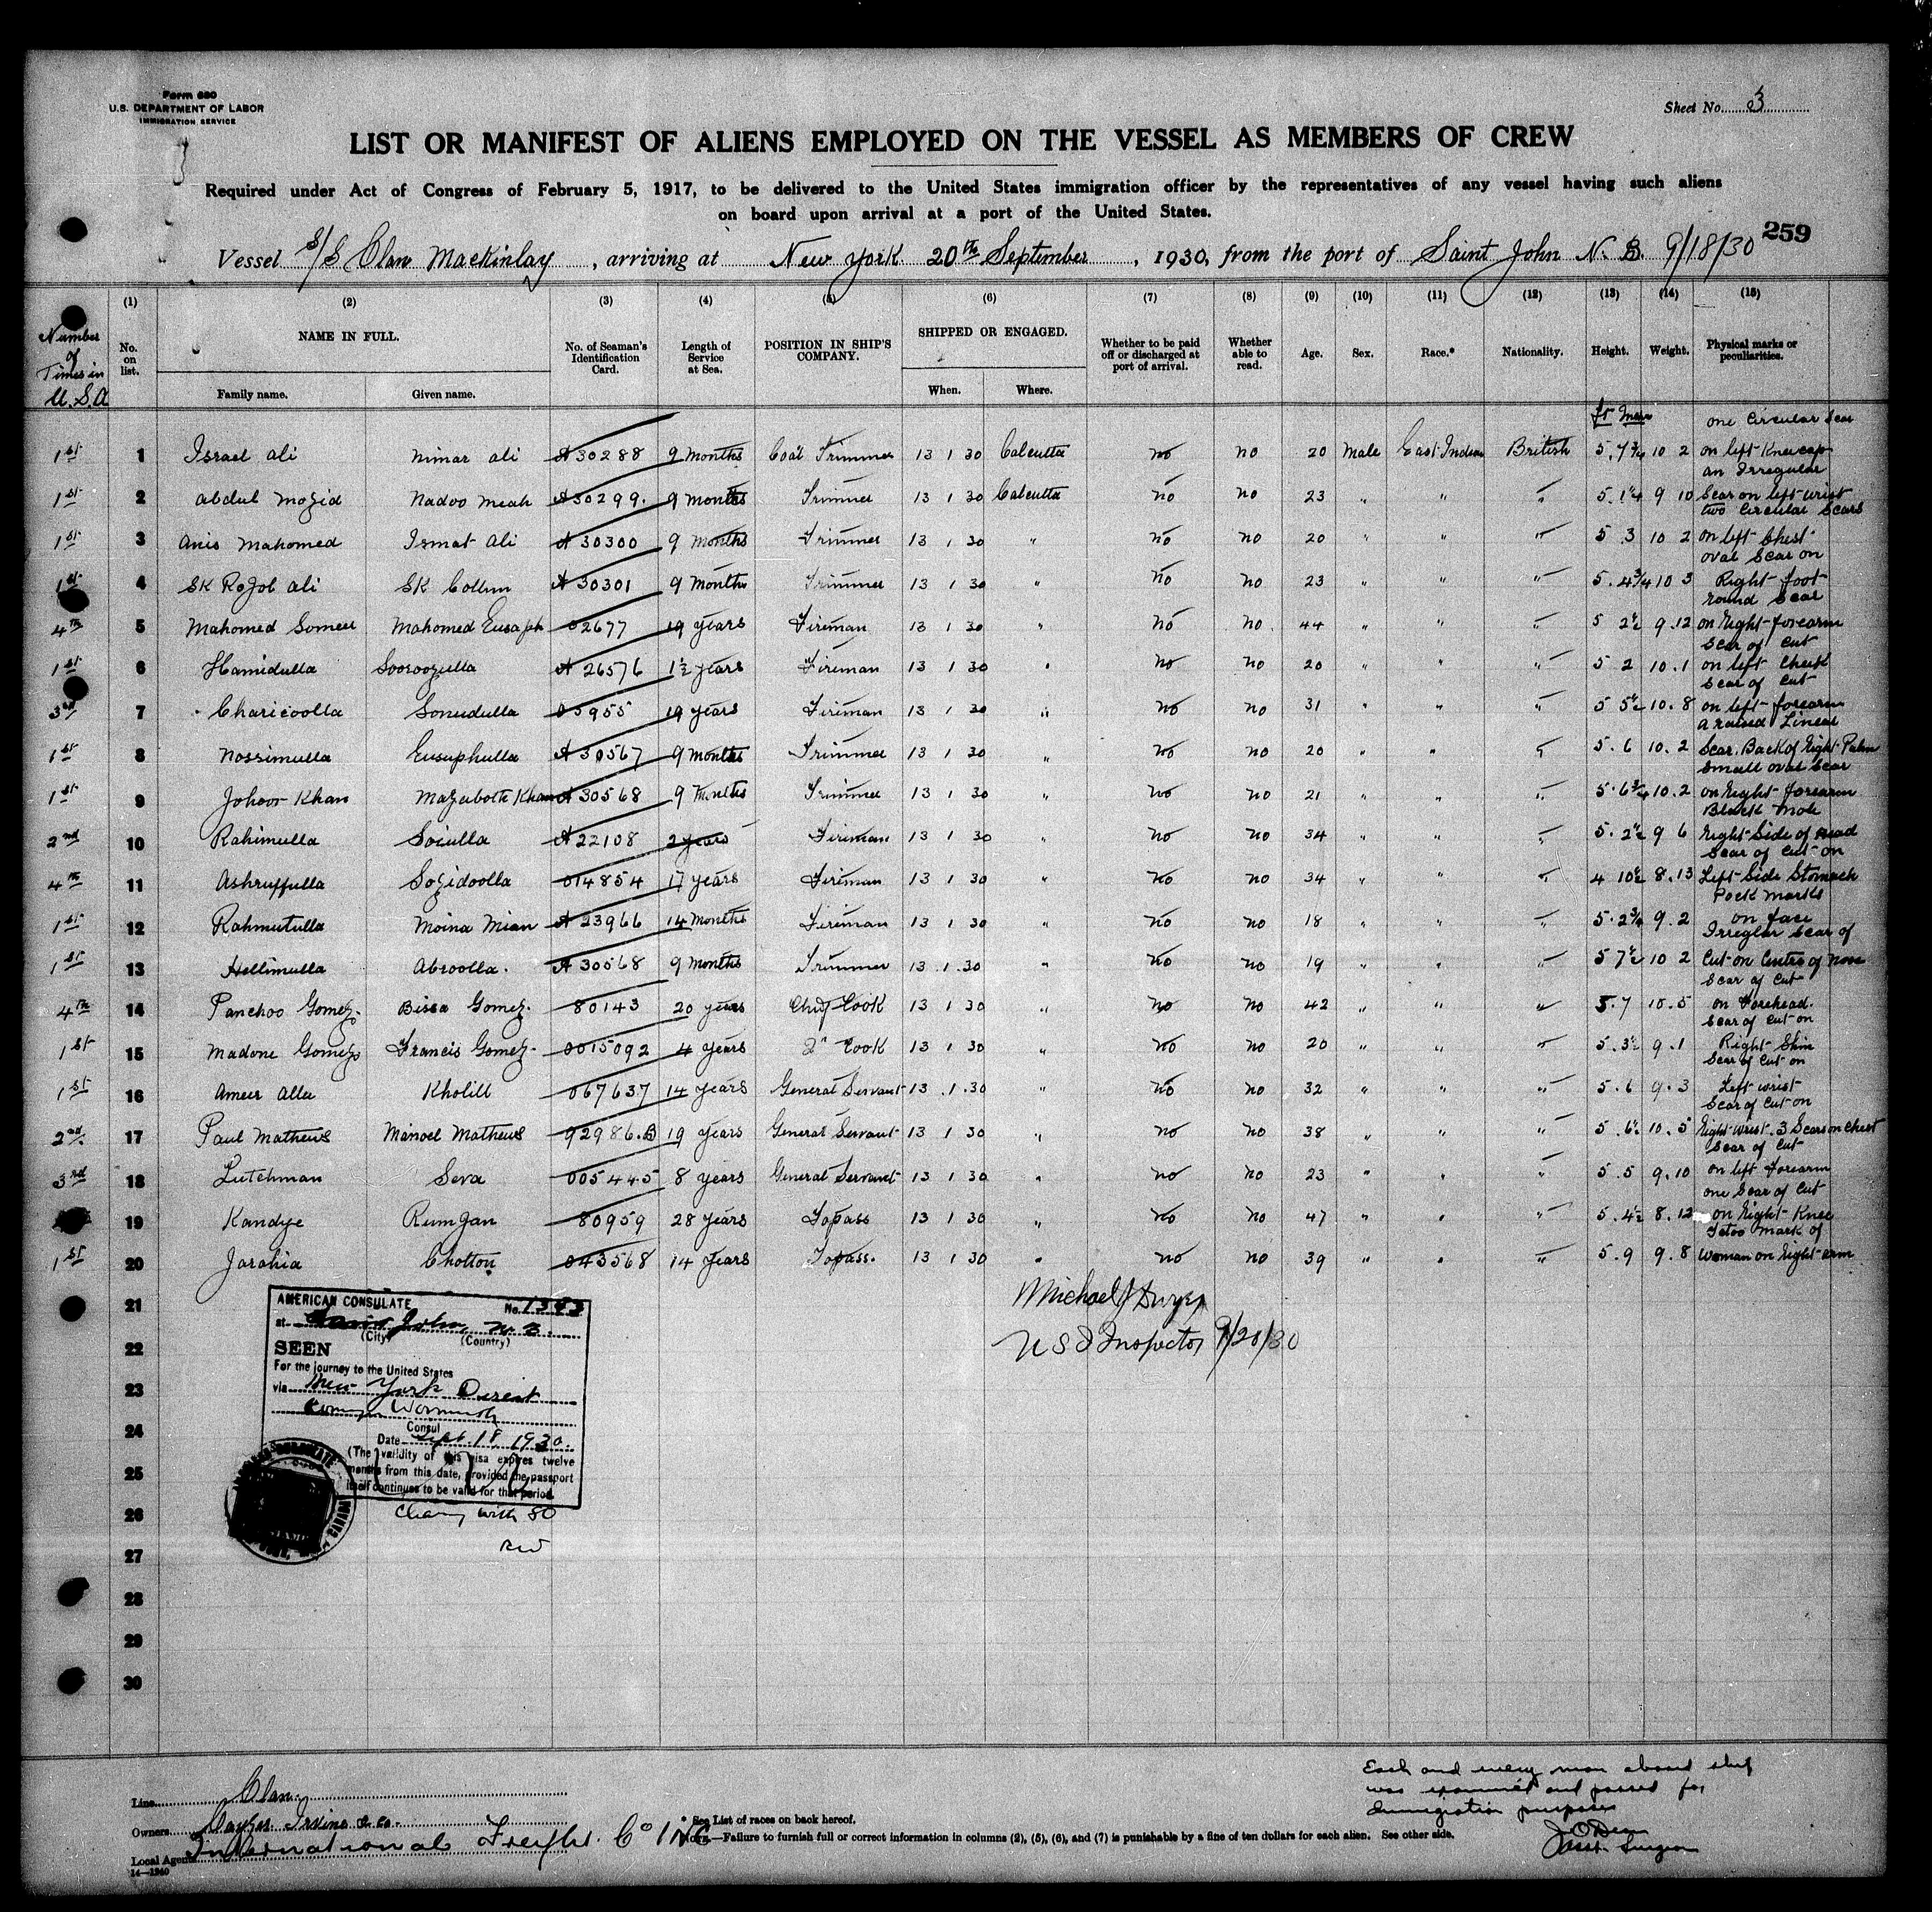 Form 680
U.S. DEPARTMENT OF LABOR
IMMIGRATION SERVICE
Sheet No. 3
LIST OR MANIFEST OF ALIENS EMPLOYED ON THE VESSEL AS MEMBERS OF CREW
Required under Act of Congress of February 5, 1917, to be delivered to the United States immigration officer by the representatives of any vessel having such aliens
on board upon arrival at a port of the United States.
259
Vessel S/S Clan Mackinlay, arriving at New York 20th September, 1930, from the port of Saint John N.B. 9/18/30
(1) (2) (3) (4) (5) (6) (7) (8) (9) (10) (11) (12) (13) (14) (15)
Number of Times in U.S.A
No. on list.
NAME IN FULL.
Family name. Given name.
No. of Seaman's Identification Card.
Length of Service at Sea.
POSITION IN SHIP'S COMPANY.
SHIPPED OR ENGAGED.
When. Where.
Whether to be paid off or discharged at port of arrival.
Whether able to read.
Age. Sex. Race.* Nationality. Height. Weight.
Physical marks or peculiarities.
1st 1 Israel Ali Nimar Ali A30288 9 months Coal Trimmer 13 1 30 Calcutta no no 20 male East Indian British 5.7 3/4 10 2 one Circular Scar on left Kneecap
1st 2 Abdul Mozid Nadoo Meah A30299. 9 months Trimmer 13 1 30 Calcutta no no 23 " " " 5.1 1/4 9 10 an Irregular Scar on left wrist
1st 3 Anis Mahomed Ismat Ali A30300 9 months Trimmer 13 1 30 " no no 20 " " " 5 3 10 2 two Circular Scars on left Chest
1st 4 SK Rojob Ali SK Collim A30301 9 months Trimmer 13 1 30 " no no 23 " " " 5.4 3/4 10 3 oval Scar on Right foot
4th 5 Mahomed Someer Mahomed Eusaph 02677 19 years Fireman 13 1 30 " no no. 44 " " " 5 2 1/2 9.12 round Scar on Right forearm
1st 6 Hamidulla Sooroozulla A 26576 1 1/2 years Fireman 13 1 30 " no no 20 " " " 5 2 10.1 Scar of Cut on left Cheek
3rd 7 Charicoolla Sonudulla 05955 19 years Fireman 13 1 30 " no no 31 " " " 5 5 1/2 10.8 Scar of Cut on left forearm
1st 8 Nossimulla Eusuphulla A 30567 9 months Trimmer 13 1 30 " no no 20 " " " 5.6 10.2 a raised Linear Scar. Back of Right Palm
1st 9 Johoor Khan Mazerbolte Khan A 30568 9 months Trimmer 13 1 30 " no no 21 " " " 5.6 3/4 10.2 small oval Scar on Right forearm
2nd 10 Rahimulla Soiulla A22108 2 years Fireman 13 1 30 no no 34 " " " 5.2 1/2 9 6 Black mole Right Side of Head
4th 11 Ashruffulla Sozidoolla 014854 17 years Fireman 13 1 30 " no no 34 " " " 4 10 1/2 8.13 Scar of Cut on Left Side Stomach
1st 12 Rahmutulla Moina Mian A 23966 14 months Fireman 13 1 30 " no no 18 " " " 5.2 3/4 9.2 Pock marks on face
1st 13 Hellimulla Abroolla. A 30568 9 months Trimmer 13.1.30 " no no 19 " " " 5 7 1/2 10 2 Irreglar Scar of Cut on Centre of Nose
4th 14 Panchoo Gomez. Bissa Gomez. 80143 20 years Chief Cook 13 1 30 " no no 42 " " " 5.7 10.5 Scar of Cut on Forehead.
1st 15 Madone Gomez Francis Gomez- 0015092 4 years 2" Cook 13 1 30 " no no 20 " " " 5.3 1/2 9.1 Scar of Cut on Right Shin
1st 16 Ameer Alla Kholill 067637 14 years General Servant 13.1.30 " no no 32 " " " 5.6 9.3 Scar of Cut on Left wrist
2nd. 17 Paul Mathews Manoel Mathews 92986.B 19 years General Servant 13 1 30 " no no 38 " " " 5.6 1/2 10.5 Scar of Cut on Right Wrist. 3 Scars on Chest
3rd 18 Lutchman Seva 005445 8 years General Servant 13 1 30 " no no 23 " " " 5.5 9.10 Scar of Cut on left Forearm
19 Kandye Rumgan 80959 28 years Topass 13 1 30 " no no 47 " " " 5.4 1/2 8.12 one Scar of Cut on Right Knee
1st 20 Jarahia Chotton 043568 14 years Topass. 13 1 30 " no no 39 " " " 5.9 9.8 Tetoo mark of Woman on Right arm
21
22
23
24
25
26
27
28
29
30
Michael J Dwyer
U S I Inspector 9/20/30
AMERICAN CONSULATE No. 1343
at Saint John, N.B.
(City) (Country)
SEEN
For the journey to the United States
via New York Direct
Consul
Date Sept. 18, 1930.
(The validity of this visa expires twelve
months from this date, provided the passport
itself continues to be valid for that period.
with 80
RW
Line Clan
Owners Cayzer Irvine & Co.
Local Agents International Freight. Co INC
14—1940
* See List of races on back hereof.
NOTE.—Failure to furnish full or correct information in columns (2), (5), (6), and (7) is punishable by a fine of ten dollars for each alien. See other side.
Each and every man aboard ship
was examined and passed for
immigration purposes
Surgeon